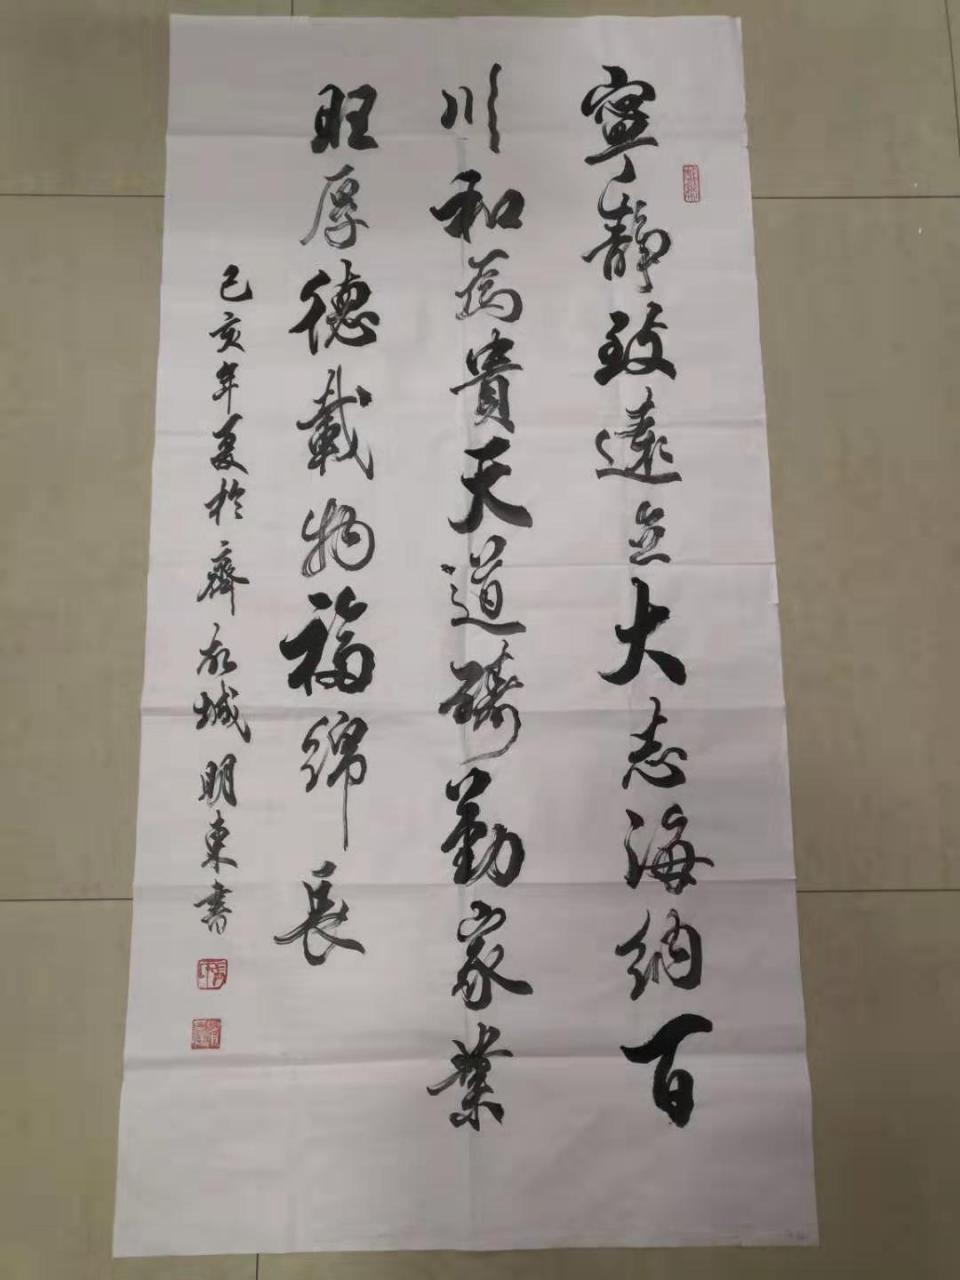 寧靜致遠立大志海納百
川和為貴天道酬勤家業
旺厚德載物福綿長
己亥年夏於齊故城明東書